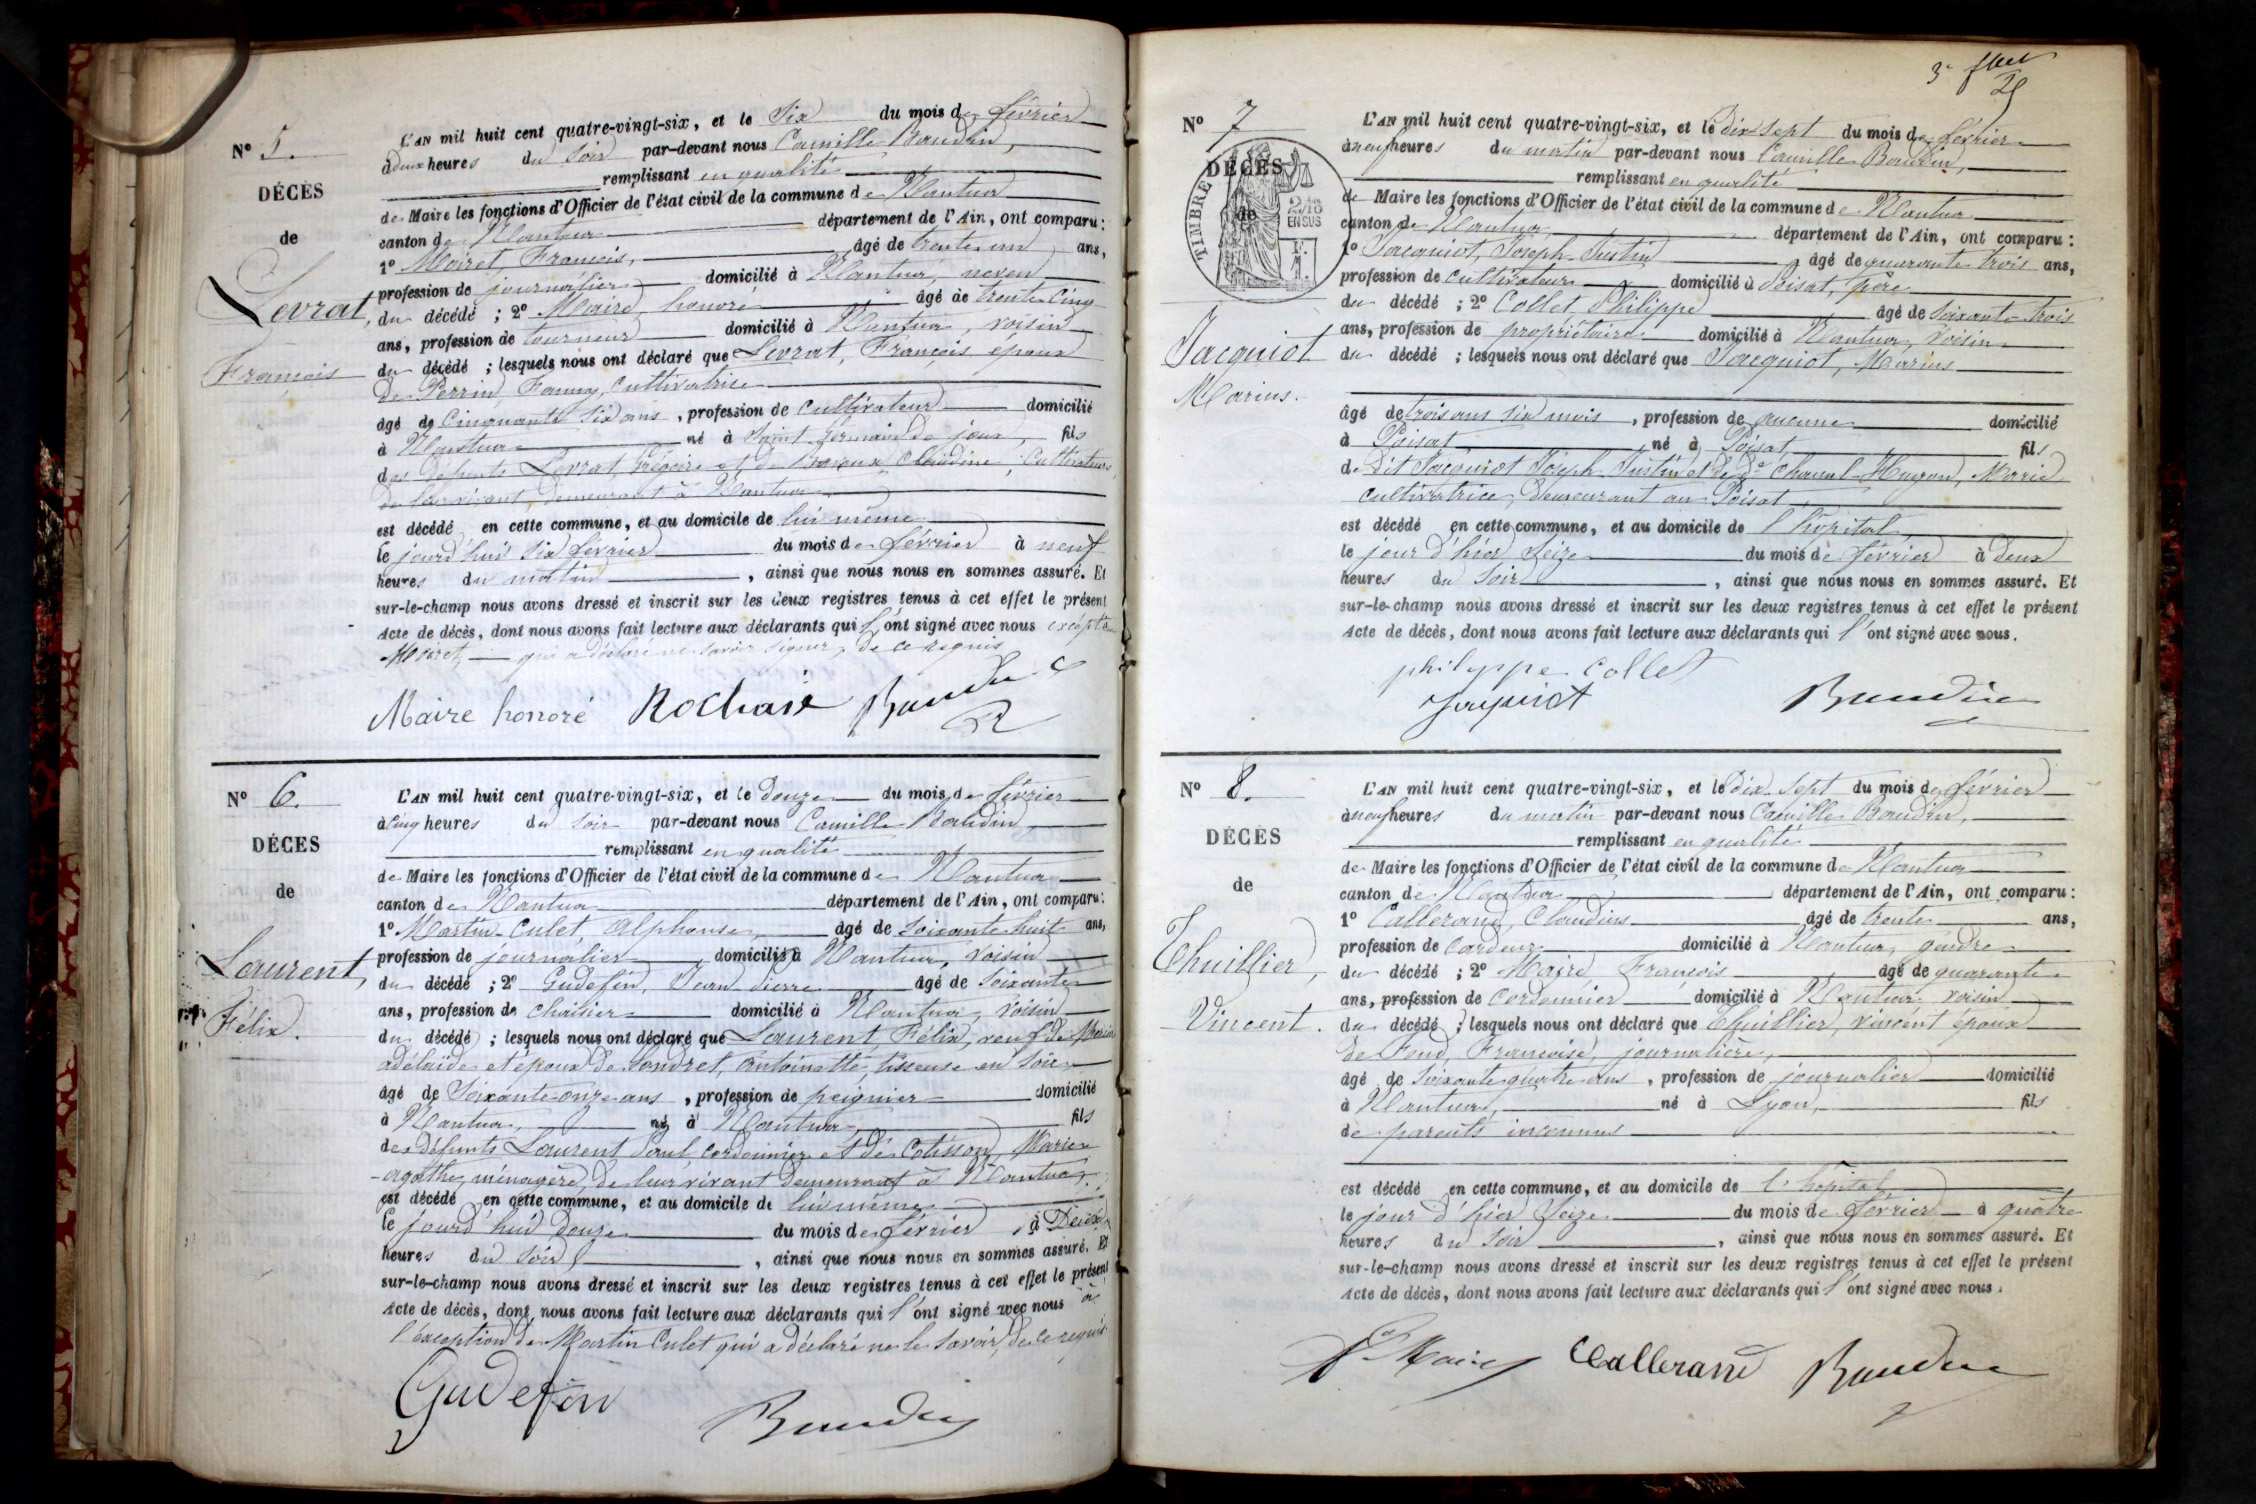 N° 5.
DÉCÈS
de
Levrat,
François
L'AN mil huit cent quatre-vingt-six, et le Six du mois de février
à deux heures du soir par-devant nous Camille Baudin,
remplissant en qualité
de Maire les fonctions d'Officier de l'état civil de la commune de Nantua
canton de Nantua département de l'Ain, ont comparu :
1° Moiret, François, âgé de trente un ans,
profession de journalier domicilié à Nantua, neveu
du décédé ; 2° Maire, honoré âgé de trente cinq
ans, profession de tourneur domicilié à Nantua, voisin
du décédé ; lesquels nous ont déclaré que Levrat, François époux
de Perrin, Fanny, cultivatrice
âgé de Cinquante six ans, profession de cultivateur domicilié
à Nantua né à Saint Germain de joux, fils
des défunts Levrat Grégoire et de Claudine, cultivateurs
de leur vivant demeurant à Nantua
est décédé en cette commune, et au domicile de lui même
le jourd'hui six février du mois de février à neuf
heures du matin, ainsi que nous nous en sommes assuré. Et
sur-le-champ nous avons dressé et inscrit sur les deux registres tenus à cet effet le présent
Acte de décès, dont nous avons fait lecture aux déclarants qui l'ont signé avec nous excepté
Moiret, qui a déclaré ne savoir signer, de ce requis
Maire honoré Rochaix Baudin
N° 6.
DÉCÈS
de
Laurent,
Félix.
L'AN mil huit cent quatre-vingt-six, et le douze du mois de février
à cinq heures du soir par-devant nous Camille Baudin,
remplissant en qualité
de Maire les fonctions d'Officier de l'état civil de la commune de Nantua
canton de Nantua département de l'Ain, ont comparu :
1° Martin-Culet, Alphonse, âgé de soixante huit ans,
profession de journalier domicilié à Nantua, voisin
du décédé ; 2° Gudefin, Jean pierre âgé de soixante
ans, profession de chaisier domicilié à Nantua, voisin
du décédé ; lesquels nous ont déclaré que Laurent, Félix, veuf de
adélaïde et époux de Sondret, antoinette, tisseuse en soie
âgé de Soixante-onze ans, profession de peignier domicilié
à Nantua, né à Nantua, fils
des défunts Laurent Paul, cordonnier et de Cotisson, Marie
-agathe, ménagère, de leur vivant demeurant à Nantua,
est décédé en cette commune, et au domicile de lui même
le jourd'hui douze du mois de février, à Deux
heures du soir, ainsi que nous nous en sommes assuré. Et
sur-le-champ nous avons dressé et inscrit sur les deux registres tenus à cet effet le présent
Acte de décès, dont nous avons fait lecture aux déclarants qui l'ont signé avec nous à
l'exception de Martin Culet qui a déclaré ne le savoir, de ce requis.
Gudefin Baudin
3e flet
N° 7
DÉCÈS
de
TIMBRE
EN SUS
Jacquiot
Marius.
L'AN mil huit cent quatre-vingt-six, et le dix sept du mois de février
à neuf heures du matin par-devant nous Camille Baudin,
remplissant en qualité
de Maire les fonctions d'Officier de l'état civil de la commune de Nantua
canton de Nantua département de l'Ain, ont comparu :
1° Jacquiot, Joseph-Justin âgé de quarante trois ans,
profession de cultivateur domicilié à Poisat, père
du décédé ; 2° Collet, Philippe âgé de soixante trois
ans, profession de propriétaire domicilié à Nantua, voisin
du décédé ; lesquels nous ont déclaré que Jacquiot, Marius
âgé de trois ans six mois, profession de aucune domicilié
à Poisat, né à Poisat, fils
de Dit Jacquiot Joseph-Justin et de de Marie
cultivatrice, demeurant au Poisat,
est décédé en cette commune, et au domicile de l'hôpital
le jour d'hier seize du mois de février à deux
heures du soir, ainsi que nous nous en sommes assuré. Et
sur-le-champ nous avons dressé et inscrit sur les deux registres tenus à cet effet le présent
Acte de décès, dont nous avons fait lecture aux déclarants qui l'ont signé avec nous.
philippe collet
Jaquiot Baudin
N° 8.
DÉCÈS
de
Thuillier,
Vincent.
L'AN mil huit cent quatre-vingt-six, et le dix-sept du mois de février
à neuf heures du matin par-devant nous Camille Baudin,
remplissant en qualité
de Maire les fonctions d'Officier de l'état civil de la commune de Nantua
canton de Nantua département de l'Ain, ont comparu :
1° Callerand, Claudius âgé de trente ans,
profession de Cardeur domicilié à Nantua, gendre
du décédé ; 2° Maire, François âgé de quarante
ans, profession de cordonnier domicilié à Nantua voisin
du décédé ; lesquels nous ont déclaré que Thuillier, vincent époux
de Fond, Françoise, journalière,
âgé de soixante quatre ans, profession de journalier domicilié
à Nantua, né à Lyon, fils
de parents inconnus
est décédé en cette commune, et au domicile de l'hôpital
le jour d'hier seize du mois de février à quatre
heures du soir, ainsi que nous nous en sommes assuré. Et
sur-le-champ nous avons dressé et inscrit sur les deux registres tenus à cet effet le présent
Acte de décès, dont nous avons fait lecture aux déclarants qui l'ont signé avec nous.
Maire Callerand Baudin